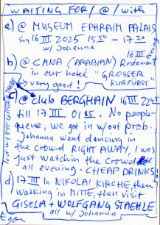 WAITING FOR / @ / with
a) @ MUSEUM EPHRAIM PALAIS
Sun 16 III 2025 15⁰⁰ – 17²²
w/ Johanna
b) @ CANA (ARABIAN) Restaurant
in our hotel "GROSSER
very good! KURFÜRST"
c) @ Club BERGHAIN 16 III 22⁰⁰
till 17 III 01⁰⁰. No people-
queue, we got in w/out prob.
Johanna went dancing in
the crowd RIGHT AWAY, I was
just watchin the crowd
all evening. CHEAP DRINKS
d) 17 III In NIKOLAI KIRCHE, then
walking in MITTE, then visit
GISELA + WOLFGANG STAEHLE
all w/ Johanna